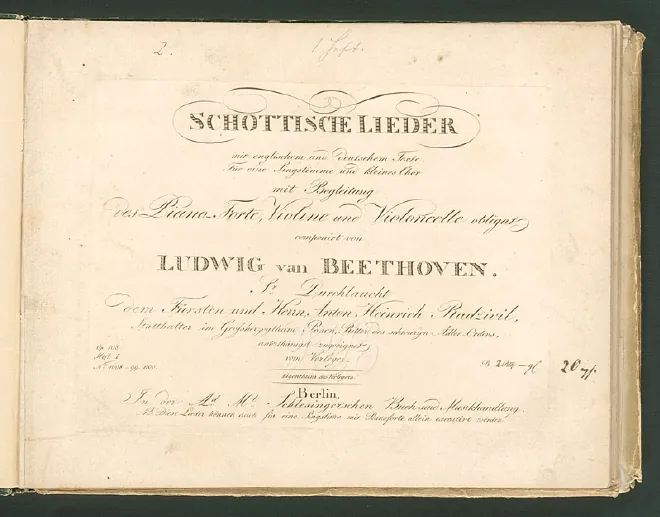 2. 1 Heft.
SCHOTTISCHE LIEDER
mit englischem und deutschem Texte.
Für eine Singstimme und kleines Chor
mit Begleitung
des Piano-Forte, Violine und Violoncelle obligat
componirt von
LUDWIG van BEETHOVEN.
Sr. Durchlaucht
dem Fürsten und Herrn, Anton Heinrich Radzivil,
Statthalter im Großherzogthum Posen, Ritter des schwarzen Adler-Ordens,
unterthänigst zugeeignet
vom Verleger.
Op. 108.
Heft I
Eigenthum des Verlegers.
Berlin,
In der Ad. Mt. Schlesingerschen Buch und Musikhandlung.
NB. Diese Lieder können auch für eine Singstimme mit Pianoforte allein executirt werden.